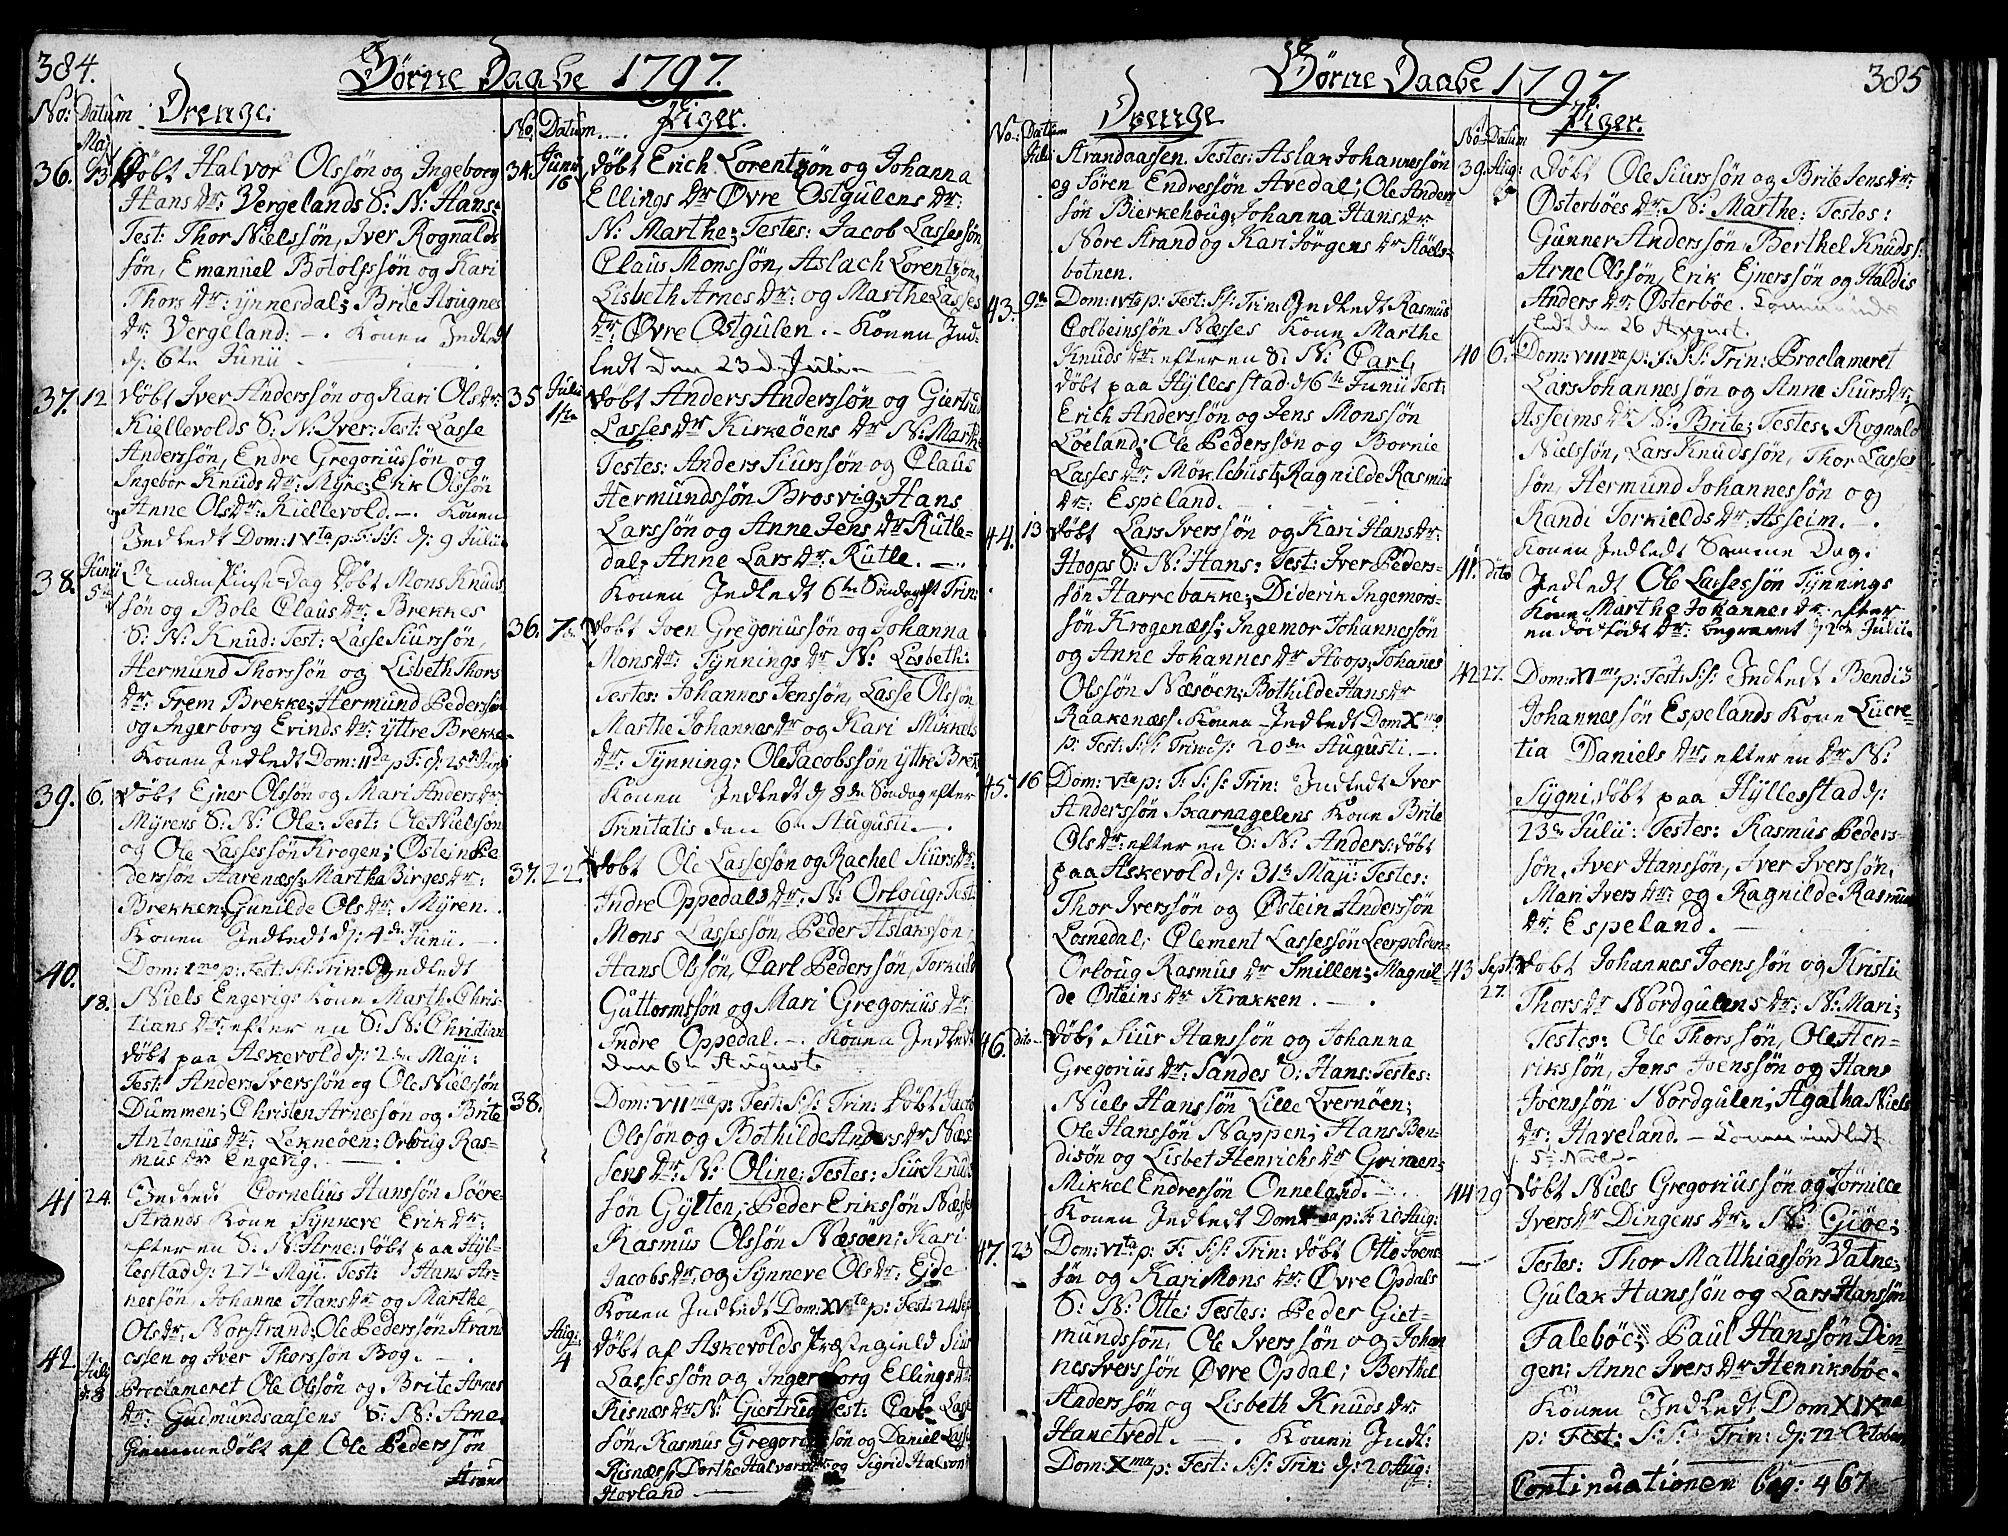 384.
Børne Daabe 1797.
No: Datum
Drenge:
Maj
36. 13 Døbt Halvor Olssøn og Ingeborg
Hans dr: Vergelands S: N: Hans:
Test: Thor Nielssøn, Iver Rognalds
søn, Emanuel Botolpssøn og Kari
Thors dr: ÿnnesdal; Brite
dr: Vergeland: — . Konen Indledt
d: 6te Junii
37. 12 Døbt Iver Anderssøn og Kari Ols dr:
Kiellevolds S: N: Iver: Test: Lasse
Anderssøn, Endre Gregoriussøn og
Ingebor Knuds dr: Myre; Erik Olssøn
og Anne Ols dr: Kiellevold. — . Konen
Indledt Dom: IVta p: F: S.S: d: 9 Julii
38. Junii 5te Anden Pinse Dag Døbt Mons Knuds
søn og Bole Claus dr: Brekkes
S: N: Knud: Test: Lasse Siurssøn,
Hermund Thorssøn og Lisbeth Thors
dr: Frem Brekke; Hermund Pederssøn
og Ingerborg Erinds dr: ÿttre Brekke
Konen Indledt Dom: IIda p F: d: 25de Junii
39. 6. Døbt Ejner Olssøn og Mari Anders dr:
Myrens S: N: Ole: Test: Ole Nielssøn
og Ole Lassessøn Krogen; Østein Pe
derssøn Aarenæss; Martha Birges dr:
Brekken; Gunilde Ols dr: Myren.
Konen Indledt d: 4de Junii. —
40. Dom: 1ma p: Fest: S.S: Trin: Indledt
18. Niels Engevigs Kone Marth: Chris-
tians dr: efter en S: N: Christian
døbt paa Askevold d: 2den Maji:
Test: Anders Iverssøn og Ole Nielssøn
Dummen; Christen Arnessøn og Brite
Antonius dr: Lekneøen; Orloug Ras-
mus dr: Engevig. —
41 24. Indledt Cornelius Hanssøn Søre
Strands Kone Synneve Erik dr:
efter en S: N: Arne: døbt paa Hÿl-
lestad d: 27de Maji. Test: Hans Ar-
nessøn, Johanne Hans dr og Marthe
Ols dr: Norstrand; Ole Pederssøn Strand
ossen og Iver Thorssøn Bog. —
42. Julii d: 2 Proclameret Ole Olssøn og Brite Arnes
dr: Gudmundsaasens S: N: Arne
Hiemmedøbt af Ole Pederssøn
Strand
No. Datum.
Piger.
34. Junii 16 Døbt Erich Lorentzøn og Johanna
Ellings dr Øvre Ostgulens dr:
N: Marthe; Testes: Jacob Lassessøn,
Claus Monssøn, Aslach Lorentzøn,
Lisbeth Arnes dr: og Marthe Lasses
dr: Øvre Ostgulen. — Konen Ind-
ledt den 23 d. Juli —
35 Julii 1ste Døbt Anders Anderssøn og Giertrud
Lasses dr Kirkeøens dr N: Marthe
Testes: Anders Siurssøn og Claus
Hermundssøn Brosvig; Hans
Larssøn og Anne Jens dr Rutle-
dal; Anne Lars dr: Rutle. —
Konen Indledt 6te Søndag eft Trin:
36. 7de Døbt Joen Gregoriussøn og Johanna
Mons dr: Tynnings dr N: Lisbeth:
Testes: Johannes Jenssøn, Lasse Olssøn
Marthe Johannes dr og Kari Mikkels
dr: Tynning: Ole Jacobssøn ÿttre Brek
Konen Indledt d 8de Søndag efter
Trinitatis den 6te Augusti —
37. 22. Døbt Ole Lassessøn og Rachel Siurs dr:
Indre Oppedals dr: N: Orloug: Test:
Mons Lassessøn, Peder Aslakssøn,
Hans Olssøn, Carl Pederssøn, Torkild
Guttormssøn og Mari Gregorius dr:
Indre Oppedal. — . Konen Indledt
den 6te Auguste
38. Dom: VIIma p: Fest: S.S: Trin: Døbt Jacob
Olssøn og Bothilde Anders dr Næs
sens dr: N: Oline: Testes: Siur Knuds
søn Gylten; Peder Erikssøn Næsse
Rasmus Olssøn Næsøen; Kari
Jacobs dr: og Synneve Ols dr: Ejde
Konen Indledt Dom: XVta p: Fest: 24 Sep
Aug: 4 Døbt af Askevolds Præstegield Siur
Lassessøn og Ingerborg Ellings dr
Risnæs dr N: Giertrud Test: Carl Lass
søn, Rasmus Gregoriussøn og Daniel Lasse
Risnæss: Dorthe Halvors dr: og Sigrid Halvors
Hovland —
385
Børne Daabe 1797
No: Datum
Drenge.
Julii Strandaassen. Testes: Aslak Johannessøn
og Søren Endressøn Avedal; Ole Anders
søn Bierkehoug; Johanna Hans dr
Nore Strand og Kari Jørgens dr Støels-
botnen.
43. 9de Dom: IVta p: Fest: S.S: Trin: Indledt Rasmus
Colbeinssøn Næsses Kone Marthe
Knuds dr: efter en S: N: Carl,
døbt paa Hÿllestad d 6te Junii Test:
Erich Anderssøn og Jens Monssøn
Loeland; Ole Pederssøn og Bornie
Lasses dr: Møklebust; Ragnilde Rasmus
dr: Espeland.
44. 13 Døbt Lars Iverssøn og Kari Hans dr:
Hoops S: N: Hans: Test: Iver Peders-
søn Harrebakke; Diderik Ingemors-
søn Krogenæss; Ingemor Johannessøn
og Anne Johannes dr Hoop; Johanes
Olssøn Næsøen; Bothilde Hans dr
Raakenæss. Konen Indledt Dom Xma
p: Fest: S.S: Trin d: 20de Augusti. —
45. 16 Dom: Vta p: F: S.S: Trin: Indledt Iver
Anderssøn Skarnagelens Kone Brite
Ols dr: efter en S: N: Anders: døbt
paa Askevold d: 31te Maji: Testes:
Thor Iverssøn og Østein Anderssøn
Losnedal; Clement Lassessøn Leerpolden
Orloug Rasmus dr Smillen; Magnil
de Østeins dr Krakken. —
46. dito Døbt Siur Hanssøn og Johanna
Gregorius dr: Sandes S: Hans: Testes:
Niels Hanssøn Lille Evernøen;
Ole Hanssøn Nappen; Hans Ben-
dissøn og Lisbet Henrichs dr Grimen;
Mikkel Endrersøn Onneland. —
Konen Indledt Dom Xma p: F: 20 Aug:
47. 23 Dom: VIta p: F: S.S: Trin: døbt Otto Joens-
søn og Kari Mons dr: Øvre Opdals
S: N: Otte: Testes: Peder Giet-
mundssøn, Ole Iverssøn og Johan
nes Iverssøn Øvre Opdal; Berthel
Anderssøn og Lisbeth Knuds dr:
Hanetvedt. — . Konen Indl:
Dom: Xma p: Fest: S.S: Trin: d: 20 Aug:
No Datum
Piger.
39. Aug: Døbt Ole Siurssøn og Brite Jens dr:
Østerbøes dr: N: Marthe: Testes:
Gunner Anderssøn, Berthel Knuds s:
Arne Olssøn, Erik Ejnerssøn og Haldis
Anders dr: Østerbøe.
ledt den 26 August.
40 6. Dom: VIIIva p: f: S.S: Trin: Proclameret
Lars Johannessøn og Anne Siurs dr:
Asseims dr N: Brite; Testes: Rognald
Nielssøn, Lars Knudssøn, Thor Lasses
søn, Hermund Johannessøn og
Randi Torkields dr: Asseim. —
Konen Indledt Samme Dag.
41. dito Indledt Ole Lassessøn Tynnings
Kone Marthe Johannes dr: efter
en død født dr: begravet d 2de Julii
42 27. Dom: XIma p: Fest: S.S: Indledt Bendiz
Johannessøn Espelands Kone Lucre-
tia Daniels dr: efter en dr N:
Sygni, døbt paa Hÿllesstad d:
23de Julii: Testes: Rasmus Peders-
søn, Iver Hanssøn, Iver Iverssøn,
Mari Ivers dr: og Ragnilde Rasmus
dr: Espeland. —
43 Sept: 27. Døbt Johannes Joenssøn og Kristi
Thors dr Nordgulens dr: N: Mari;
Testes: Ole Thorssøn, Ole Hen-
rikssøn, Jens Joenssøn og Hans
Joenssøn Nordgulen; Agatha Niels
dr: Haveland. — Konen indledt
5te Novb —
44 29 Døbt Niels Gregoriussøn og Tørnille
Ivers dr Dingens dr: N: Giøe;
Testes: Thor Matthiassøn Vatne;
Gulak Hanssøn og Lars Hanssøn
Falebøe; Paul Hanssøn Din-
gen; Anne Ivers dr Henriksbøe.
Konen Indledt Dom XIXna
p: Fest: S.S: Trin: d: 22 October
Continuationen Pag: 467